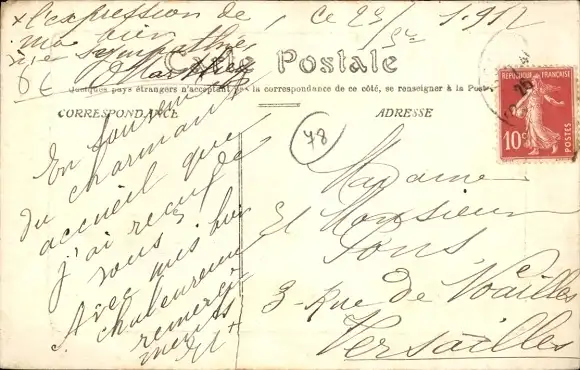 x l'expression de , ce 23/ 1.912
ma bien
sympathie
Carte Postale
Quelques pays étrangers n'acceptent pas la correspondance de ce côté, se renseigner à la Poste
CORRESPONDANCE
ADRESSE
RÉPUBLIQUE FRANÇAISE
10c
POSTES
78
En souvenir
du charmant
accueil que
j'ai reçu de
vous
Avec mes bien
chaleureux
remerci
ments
et x
Madame
et Monsieur
Pons
3 - Rue de Noailles
Versailles